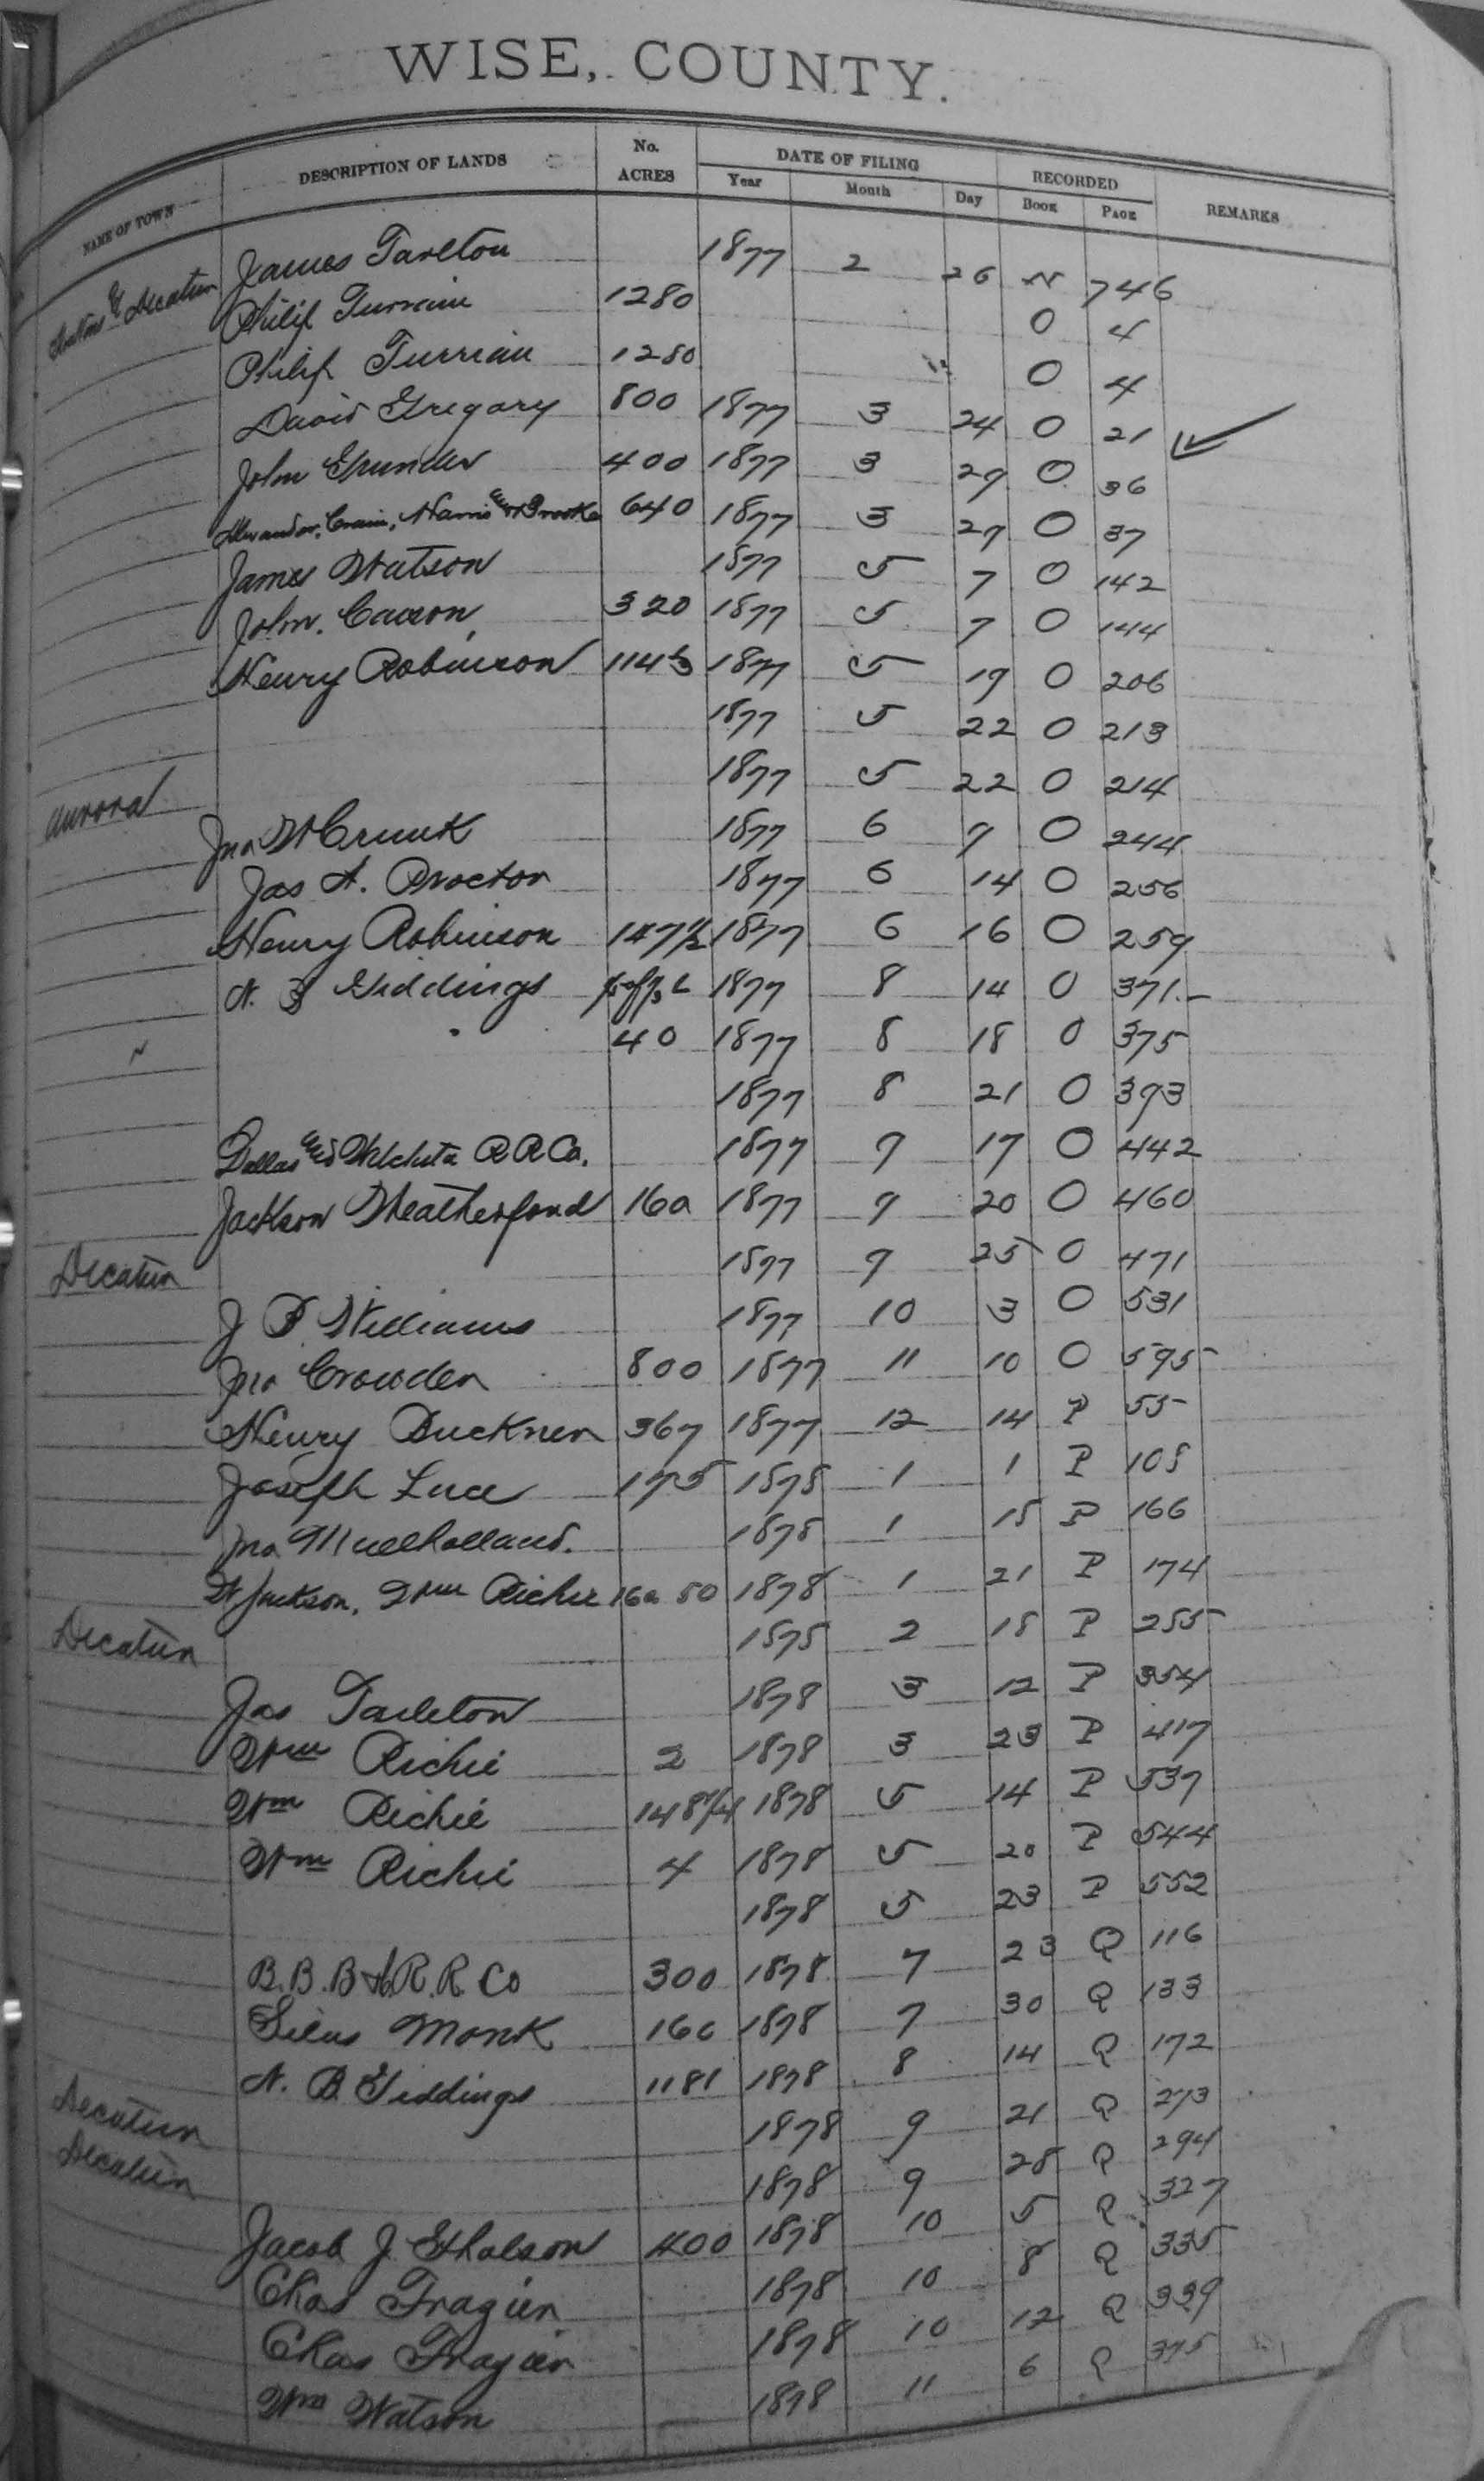 WISE, COUNTY.
NAME OF TOWN DESCRIPTION OF LANDS No. ACRES DATE OF FILING Year Month Day RECORDED BOOK PAGE REMARKS
Decatur James Tarlton 1877 2 26 N 746
Philip 1280 O 4
Philip 1280 O 4
David Gregory 800 1877 3 24 O 21
John 400 1877 3 29 O 36
Alexander, Crain, Harris 640 1877 3 29 O 37
James Watson 1877 5 7 O 142
John 320 1877 5 7 O 144
Henry Robinson 1877 5 19 O 206
1877 5 22 O 213
Aurora 1877 5 22 O 214
Jno W Crunk 1877 6 9 O 244
Jas A. Proctor 1877 6 14 O 256
Henry Robinson 147½ 1877 6 16 O 259
N. B Giddings 1877 8 14 O 371
" 40 1877 8 18 O 375
1877 8 21 O 393
Dallas and Wichita R R Co. 1877 9 17 O 442
Jackson Weatherford 160 1877 9 20 O 460
Decatur 1877 9 25 O 471
J B Williams 1877 10 3 O 531
Jno Crowder 800 1877 11 10 O 595
Henry Buckner 367 1877 12 14 P 55
Joseph Luce 175 1878 1 1 P 108
Jno Muelholland. 1878 1 15 P 166
W Jackson, Wm Richie 160 80 1878 1 21 P 174
Decatur 1878 2 18 P 255
Jas Tarleton 1878 3 12 P 354
Wm Richie 2 1878 3 23 P 417
Wm Richie 148¼ 1878 5 14 P 537
Wm Richie 4 1878 5 20 P 544
1878 5 23 P 552
B. B. B & C. R. R. Co 300 1878 7 23 Q 116
Silas Monk 160 1878 7 30 Q 133
N. B. Giddings 1181 1878 8 14 Q 172
Decatur 1878 9 21 Q 273
Decatur 1878 9 28 Q 294
Jacob J. Gholson 400 1878 10 5 Q 327
Chas Frazier 1878 10 8 Q 335
Chas Frazier 1878 10 12 Q 339
Wm Watson 1878 11 6 Q 375